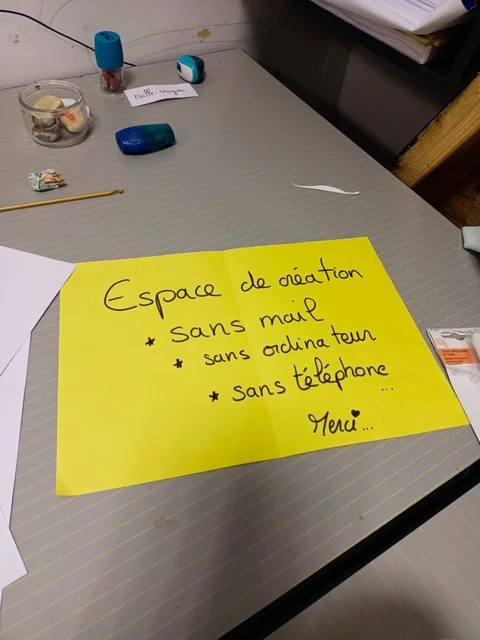 Taille-crayon
Espace de création
* sans mail
* sans ordinateur
* sans téléphone
...
Merci...